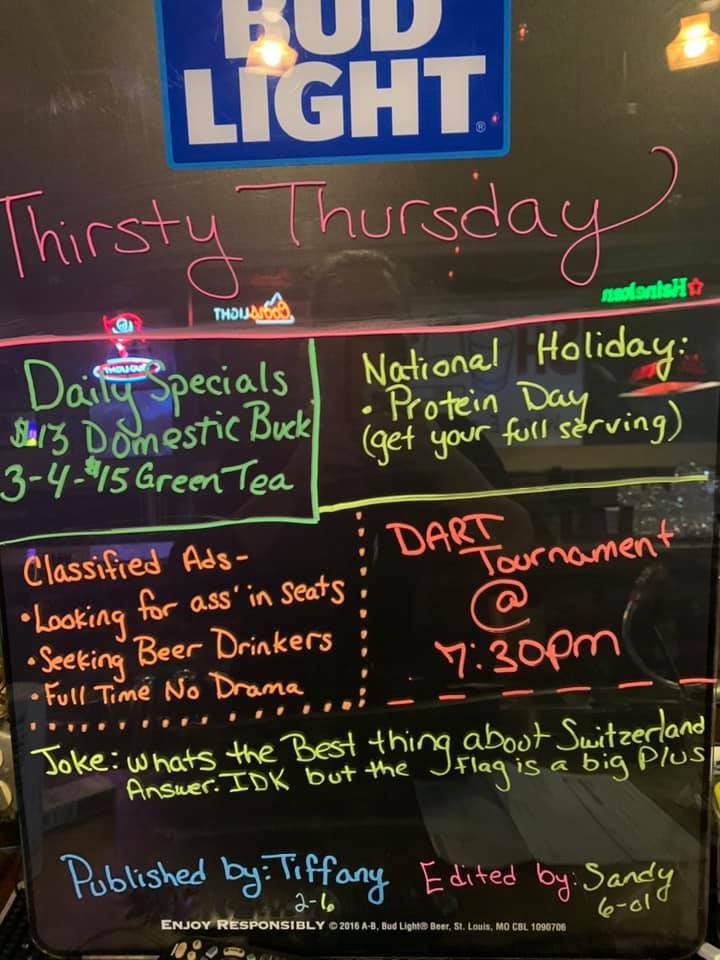 BUD
LIGHT®
Thirsty Thursday
Heineken
Daily Specials
$13 Domestic Buck
3-4-$15 Green Tea
National Holiday:
• Protein Day
(get your full serving)
Classified Ads-
• Looking for ass' in seats
• Seeking Beer Drinkers
• Full Time No Drama
DART
Tournament
@
7:30pm
Joke: whats the Best thing about Switzerland
Answer. IDK but the flag is a big Plus
Published by: Tiffany
2-6
Edited by: Sandy
6-01
ENJOY RESPONSIBLY © 2016 A-B, Bud Light® Beer, St. Louis, MO CBL 1090706